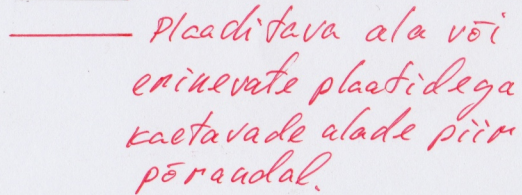 Plaaditava ala või
erinevate plaatidega
kaetavade alade piir
põrandal.